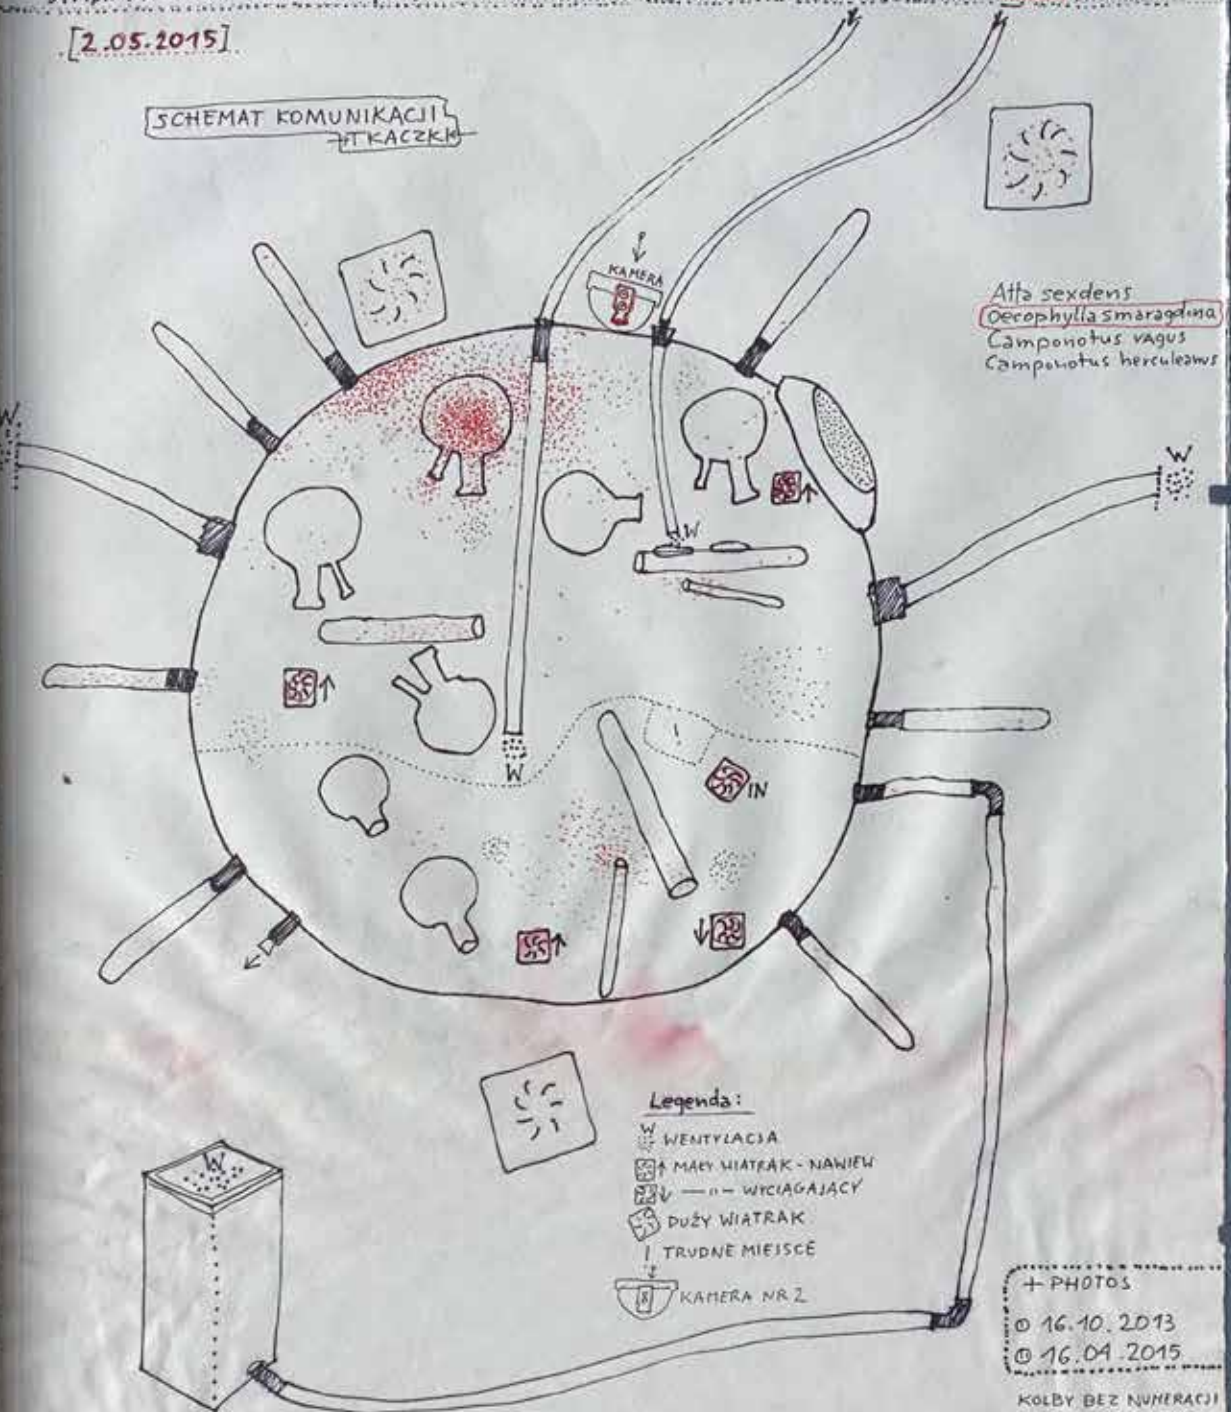 [2.05.2015]
SCHEMAT KOMUNIKACJI
TKACZKI
KAMERA
Atta sexdens
Oecophylla smaragdina
Camponotus vagus
Camponotus herculeanus
W
W
W
!
W
IN
W
Legenda:
W
WENTYLACJA
MAŁY WIATRAK - NAWIEW
— " — WYCIĄGAJĄCY
DUŻY WIATRAK
! TRUDNE MIEJSCE
KAMERA NR 2
+ PHOTOS
① 16.10.2013
16.04.2015
KOLBY BEZ NUMERACJI